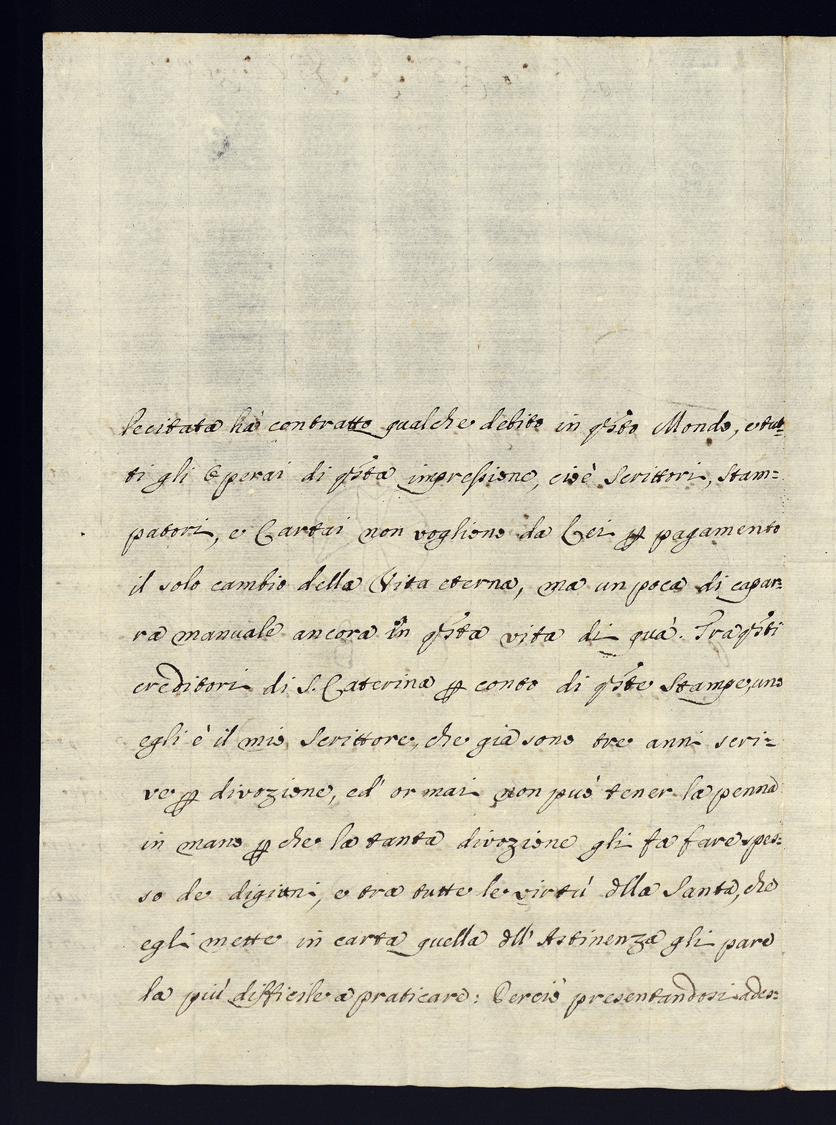 lecitata hà contratto qualche debito in q̃sto Mondo, e tut-
ti gli Operai di q̃sta impressione, cioè Scrittori, Stam=
patori, e Cartai non vogliono da Lei ꝑ pagamento
il solo cambio della Vita eterna, ma un poca di capar=
ra manuale ancora in q̃sta vita di quà. Tra q̃sti
creditori di S. Caterina ꝑ conto di q̃ste Stampe, uno
egli è il mio Scrittore, che già sono tre anni scri=
ve ꝑ divozione, ed' or mai non può tener la penna
in mano ꝑ che la tanta divozione gli fa fare spes=
so de digiuni, e tra tutte le virtù dlla Santa, che
egli mette in carta quella dll' Astinenza gli pare
la più difficile a praticare: Perciò presentandosi ades=